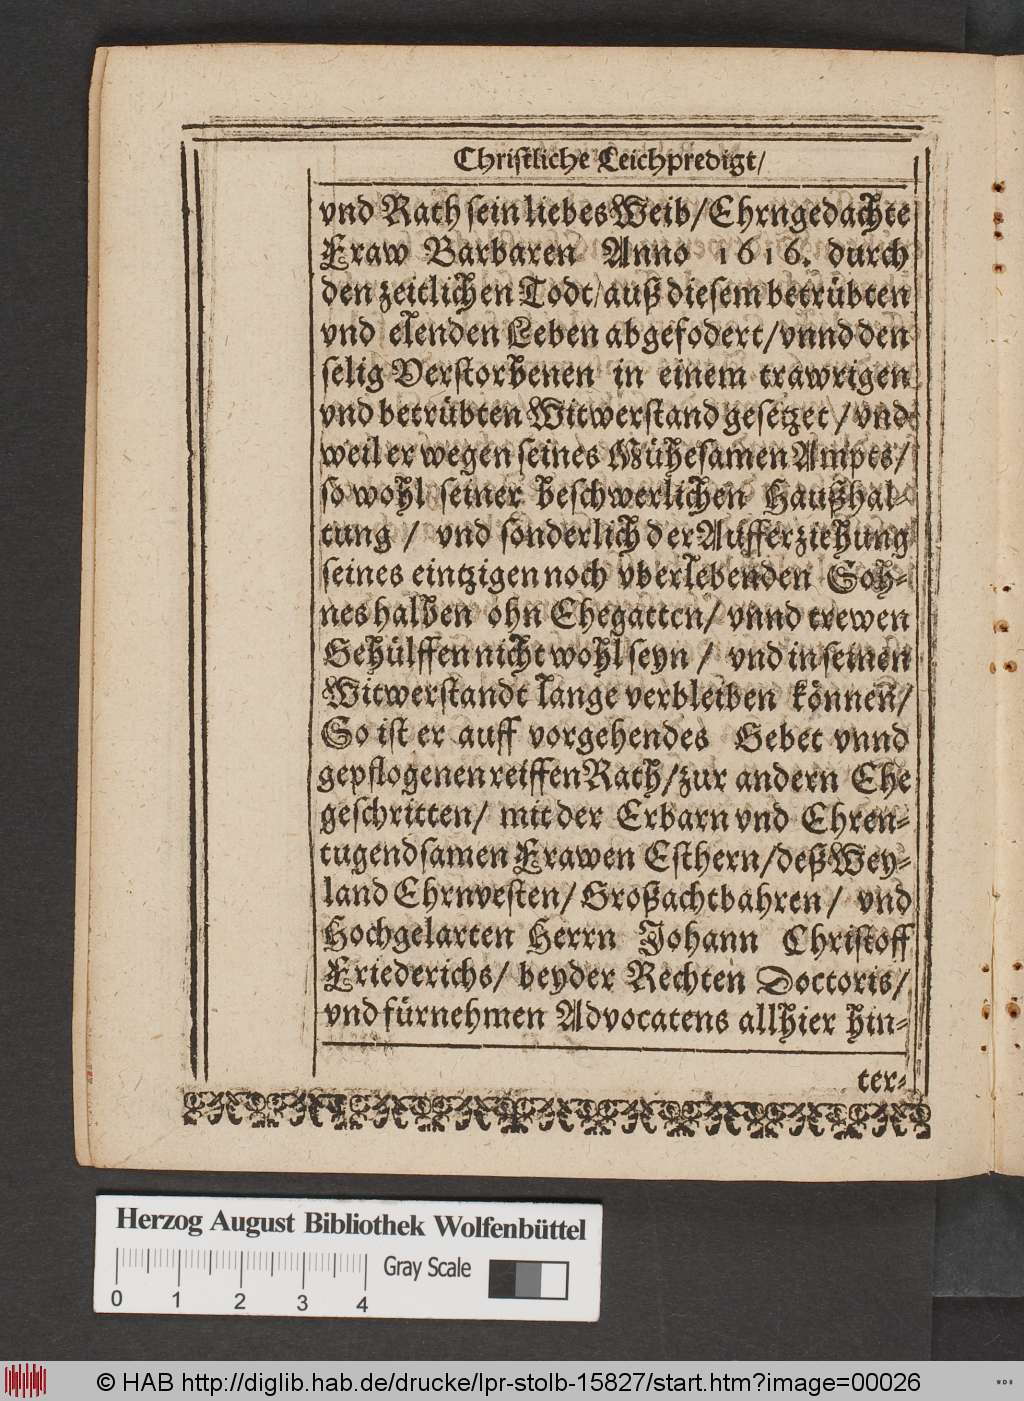 Christliche Leichpredigt/
vnd Rath sein liebes Weib/ Ehrngedachte
Fraw Barbaren Anno 1616. durch
den zeitlichen Todt/ auß diesem betrübten
vnd elenden Leben abgefodert/ vnnd den
selig Verstorbenen in einem trawrigen
vnd betrübten Witwerstand gesetzet/ vnd
weil er wegen seines Mühesamen Amptes/
so wohl seiner beschwerlichen Haußhal-
tung / vnd sonderlich der Aufferziehung
seines eintzigen noch vberlebenden Soh-
nes halben ohn Ehegatten/ vnnd trewen
Gehülffen nicht wohl seyn / vnd in seinen
Witwerstandt lange verbleiben können/
So ist er auff vorgehendes Gebet vnnd
gepflogenen reiffen Rath/ zur andern Ehe
geschritten/ mit der Erbarn vnd Ehren-
tugendsamen Frawen Esthern/ deß Wey-
land Ehrnvesten/ Großachtbahren/ vnd
Hochgelarten Herrn Johann Christoff
Friederichs/ beyder Rechten Doctoris/
vnd fürnehmen Advocatens allhier hin-
ter-
Herzog August Bibliothek Wolfenbüttel
Gray Scale
0 1 2 3 4
© HAB http://diglib.hab.de/drucke/lpr-stolb-15827/start.htm?image=00026